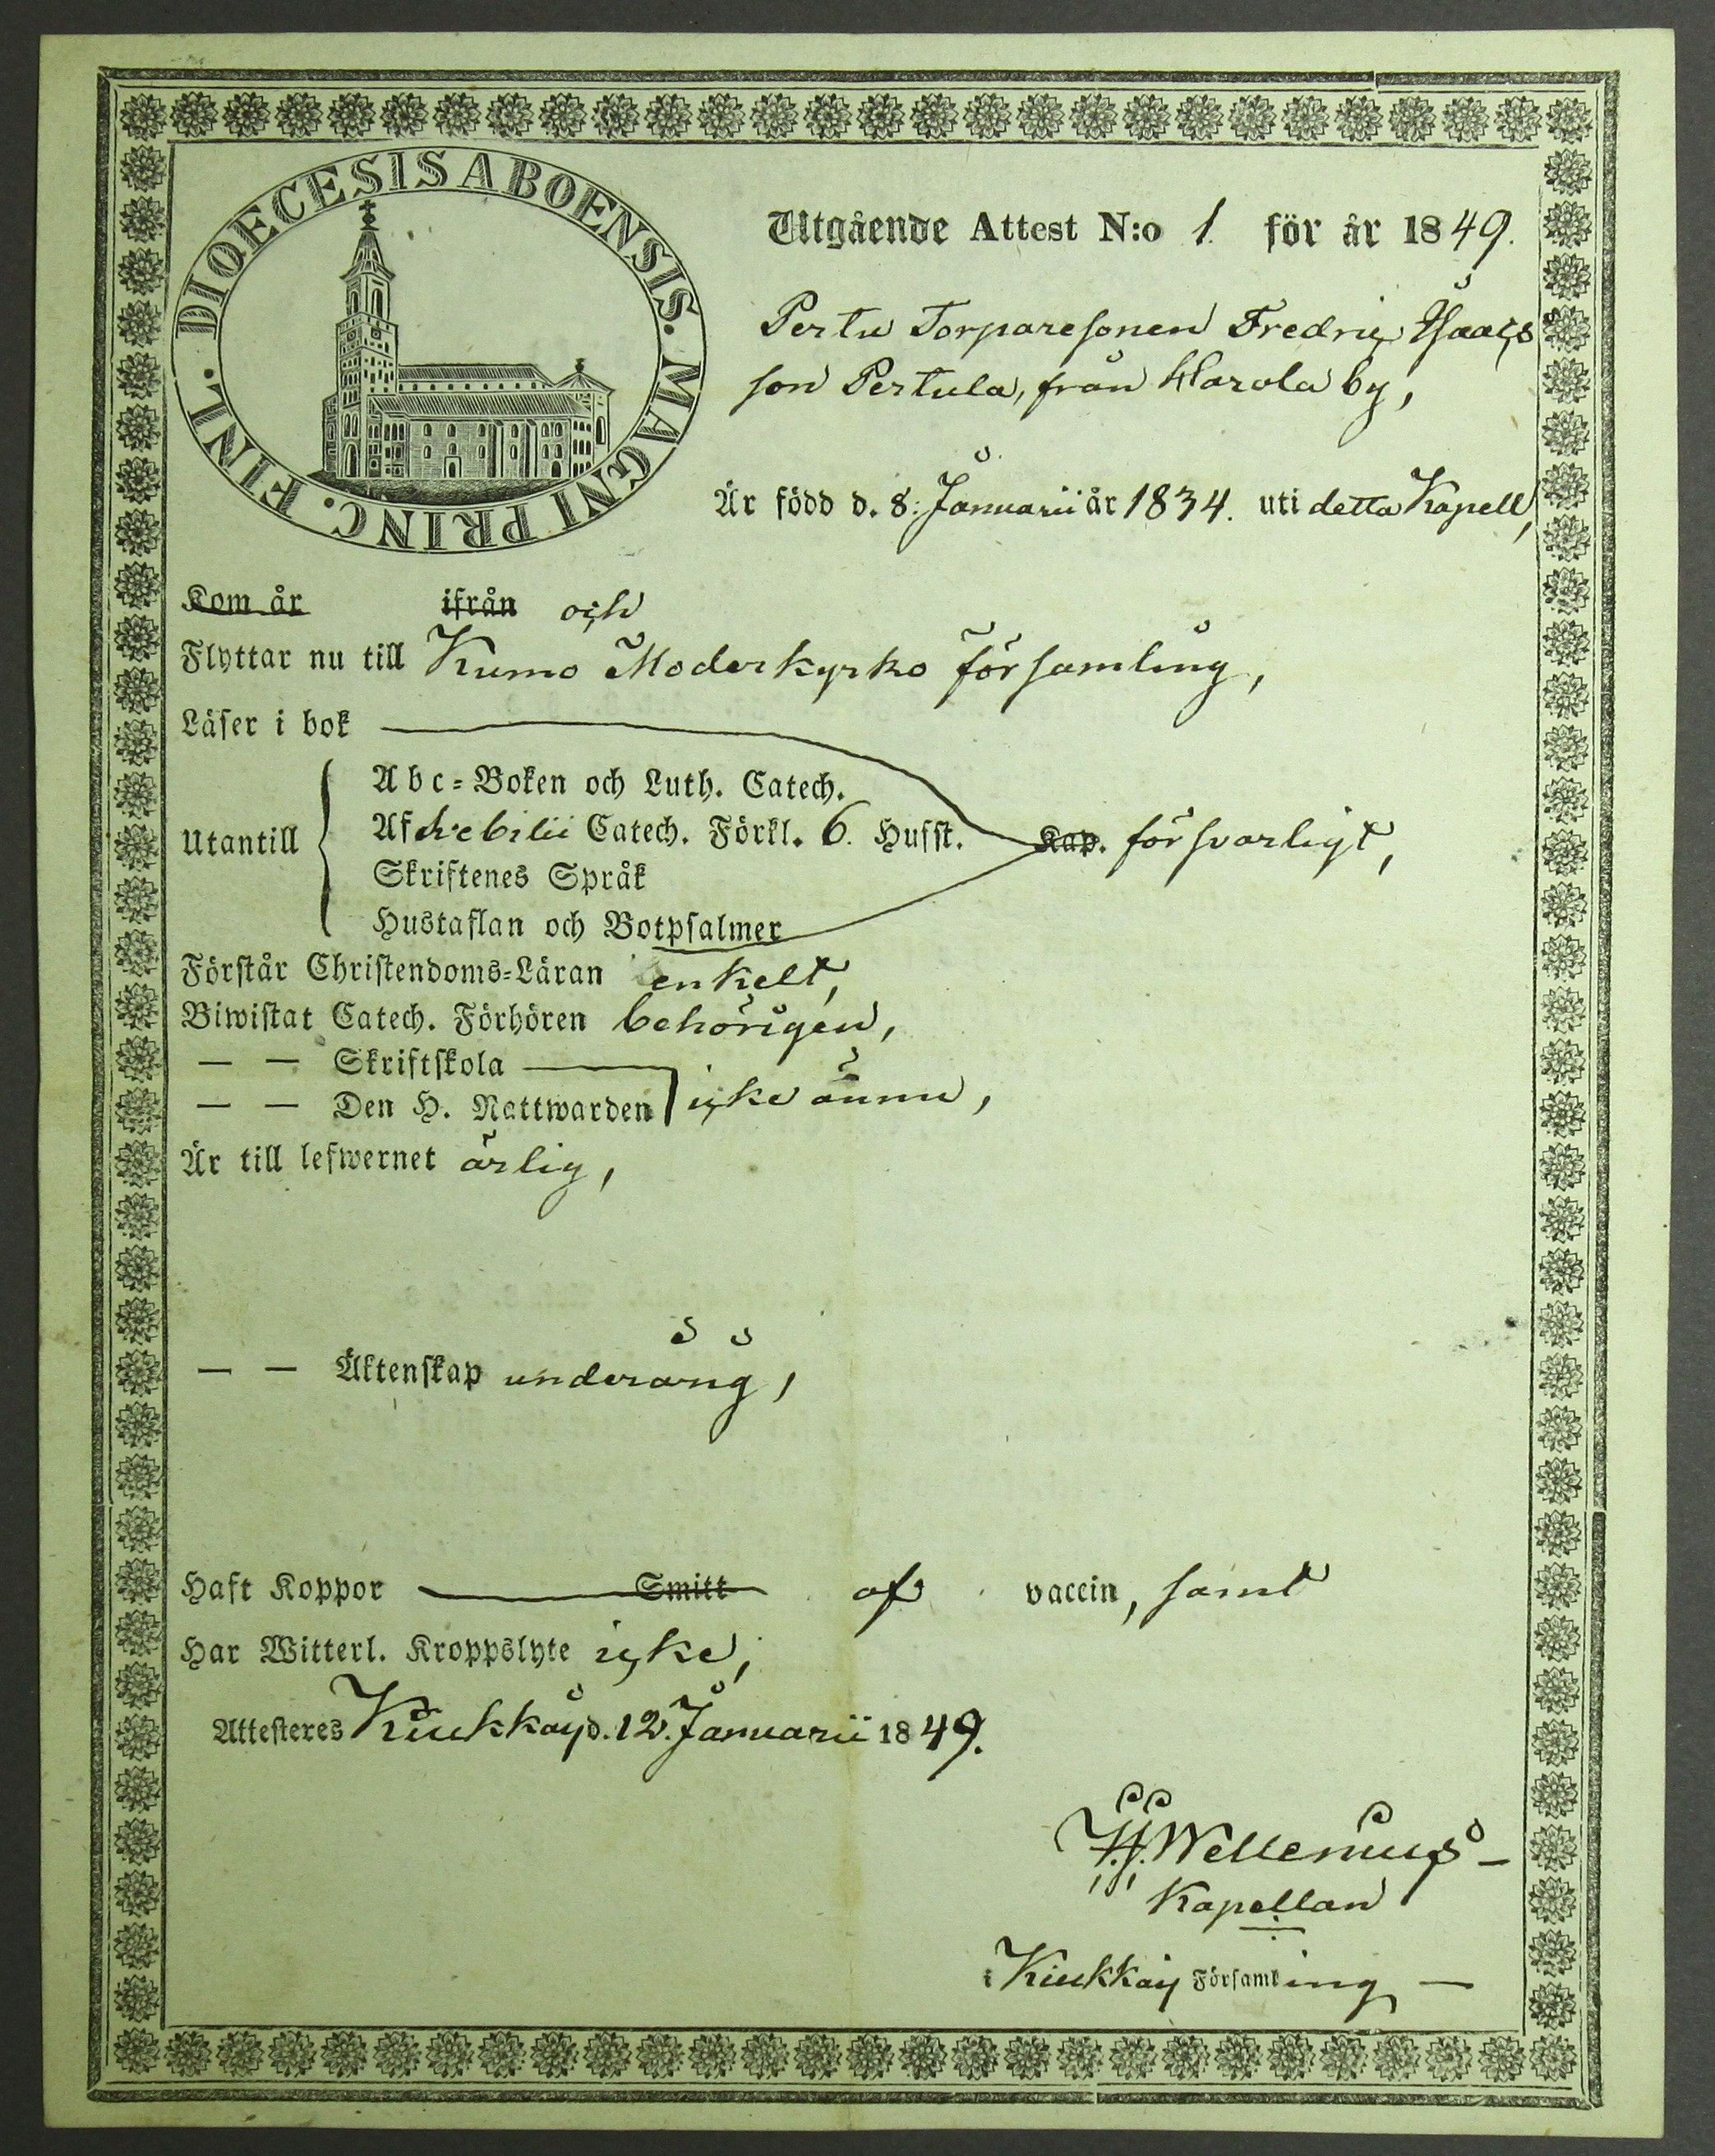 DIOECESIS ABOENSIS. MAGNI PRINC. FINL.
Utgående Attest N:o 1. för år 1849.
Pertu Torparesonen Fredric Isaacs
son Pertula, från Harola by,
Är född d. 8: Januarii år 1834. uti detta Kapell,
Kom år ifrån och
Flyttar nu till Kumo Moderkyrko församling,
Läser i bok
Abc-Boken och Luth. Catech.
Utantill Afvebilii Catech. Förkl. 6. Husst. Kap. försvarligt,
Skriftenes Språk
Hustaflan och Botpsalmer
Förstår Christendoms-Läran enkelt,
Biwistat Catech. Förhören behörigen,
— — Skriftskola
— — Den H. Nattwarden icke ännu,
Är till lefwernet ärlig,
— — Äktenskap underårig,
Haft Koppor Smitt af vaccin, samt
Har Witterl. Kroppslyte icke,
Attesteres Kiukkais d. 12. Januarii 1849.
Wellenius
Kapellan
i Kiukkais Församling —